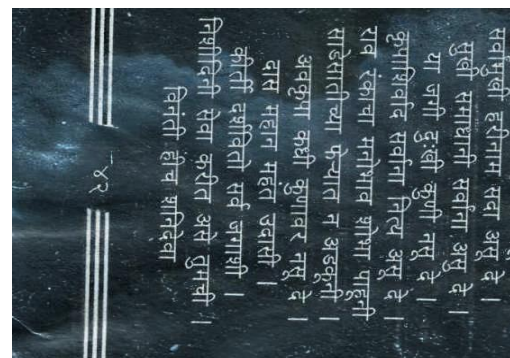 सर्वामुखी हरीनाम सदा असु दे ।
सुखी समाधानी सर्वांना असु दे ।
या जगी दुःखी कुणी नसु दे ।
कृपाशिर्वाद सर्वांना नित्य असु दे ।
राव रंकाचा मनोभाव शोभा पाहूनी
साडेसातीच्या फेऱ्यात न अडकूनी ।
अवकृपा कधी कुणावर नसु दे ।
दास महान महंत उदासी ।
कीर्ती दर्शविते सर्व जगाशी ।
निशीदिनी सेवा करीत असे तुमची ।
विनंती हीच शनिदेवा
४२